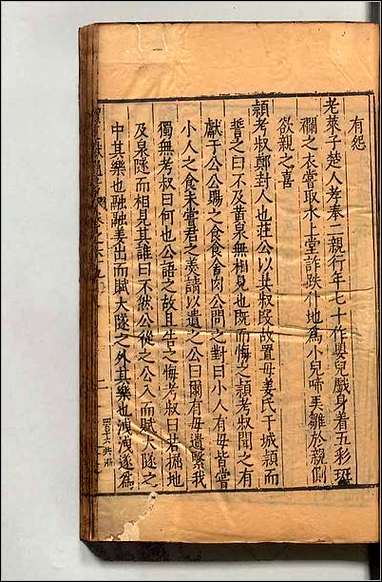 有怨
老萊子楚人孝奉二親行年七十作嬰兒戲身着五彩斑
斕之衣嘗取水上堂詐跌仆地為小兒啼弄雛於親側
欲親之喜
頴考叔鄭封人也莊公以其叔段故置母姜氏于城頴而
誓之曰不及黃泉無相見也既而悔之頴考叔聞之有
獻于公公賜之食食舍肉公問之對曰小人有母皆嘗
小人之食未嘗君之羮請以遺之公曰爾有母遺繄我
獨無考叔曰何也公語之故且告之悔考叔曰若掘地
及泉隧而相見其誰曰不然公從之公入而賦大隧之
中其樂也融融姜出而賦大隧之外其樂也洩洩遂為